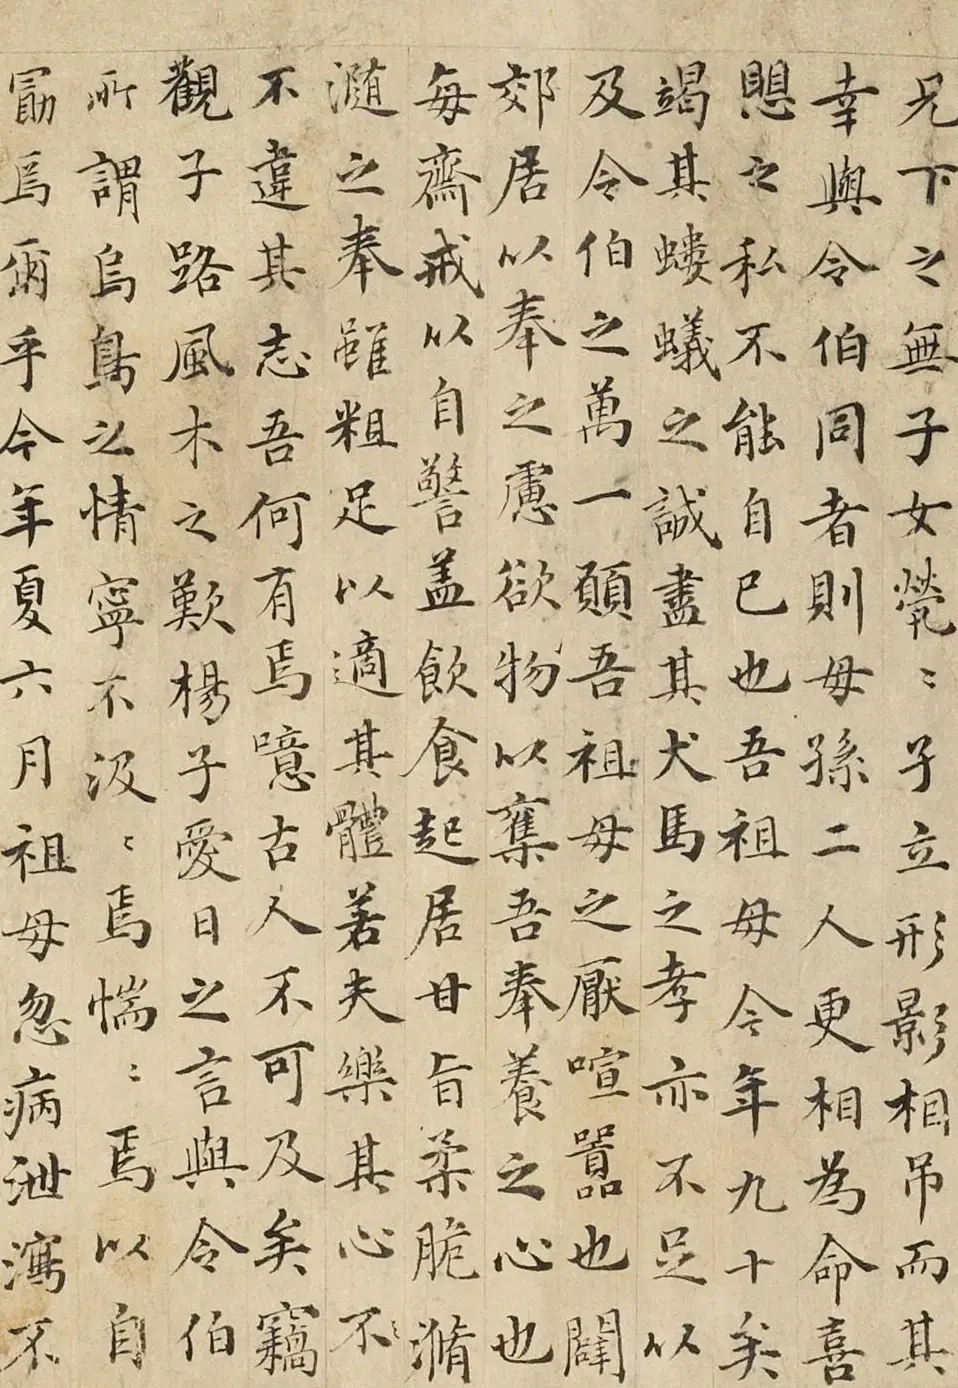 兄下之無子女煢〻子立形影相吊而其
幸與令伯同者則母孫二人更相為命喜
愳之私不能自已也吾祖母今年九十矣
竭其螻蟻之誠盡其犬馬之孝亦不足以
及令伯之萬一願吾祖母之厭喧囂也闢
郊居以奉之慮欲物以奪吾奉養之心也
每齋戒以自警盖飲食起居甘旨柔脆滫
瀡之奉雖粗足以適其體若夫樂其心不
不違其志吾何有焉噫古人不可及矣竊
觀子路風木之歎楊子愛日之言與令伯
所謂烏鳥之情寧不汲〻焉惴〻焉以自
勖焉爾乎今年夏六月祖母忽病泄瀉不